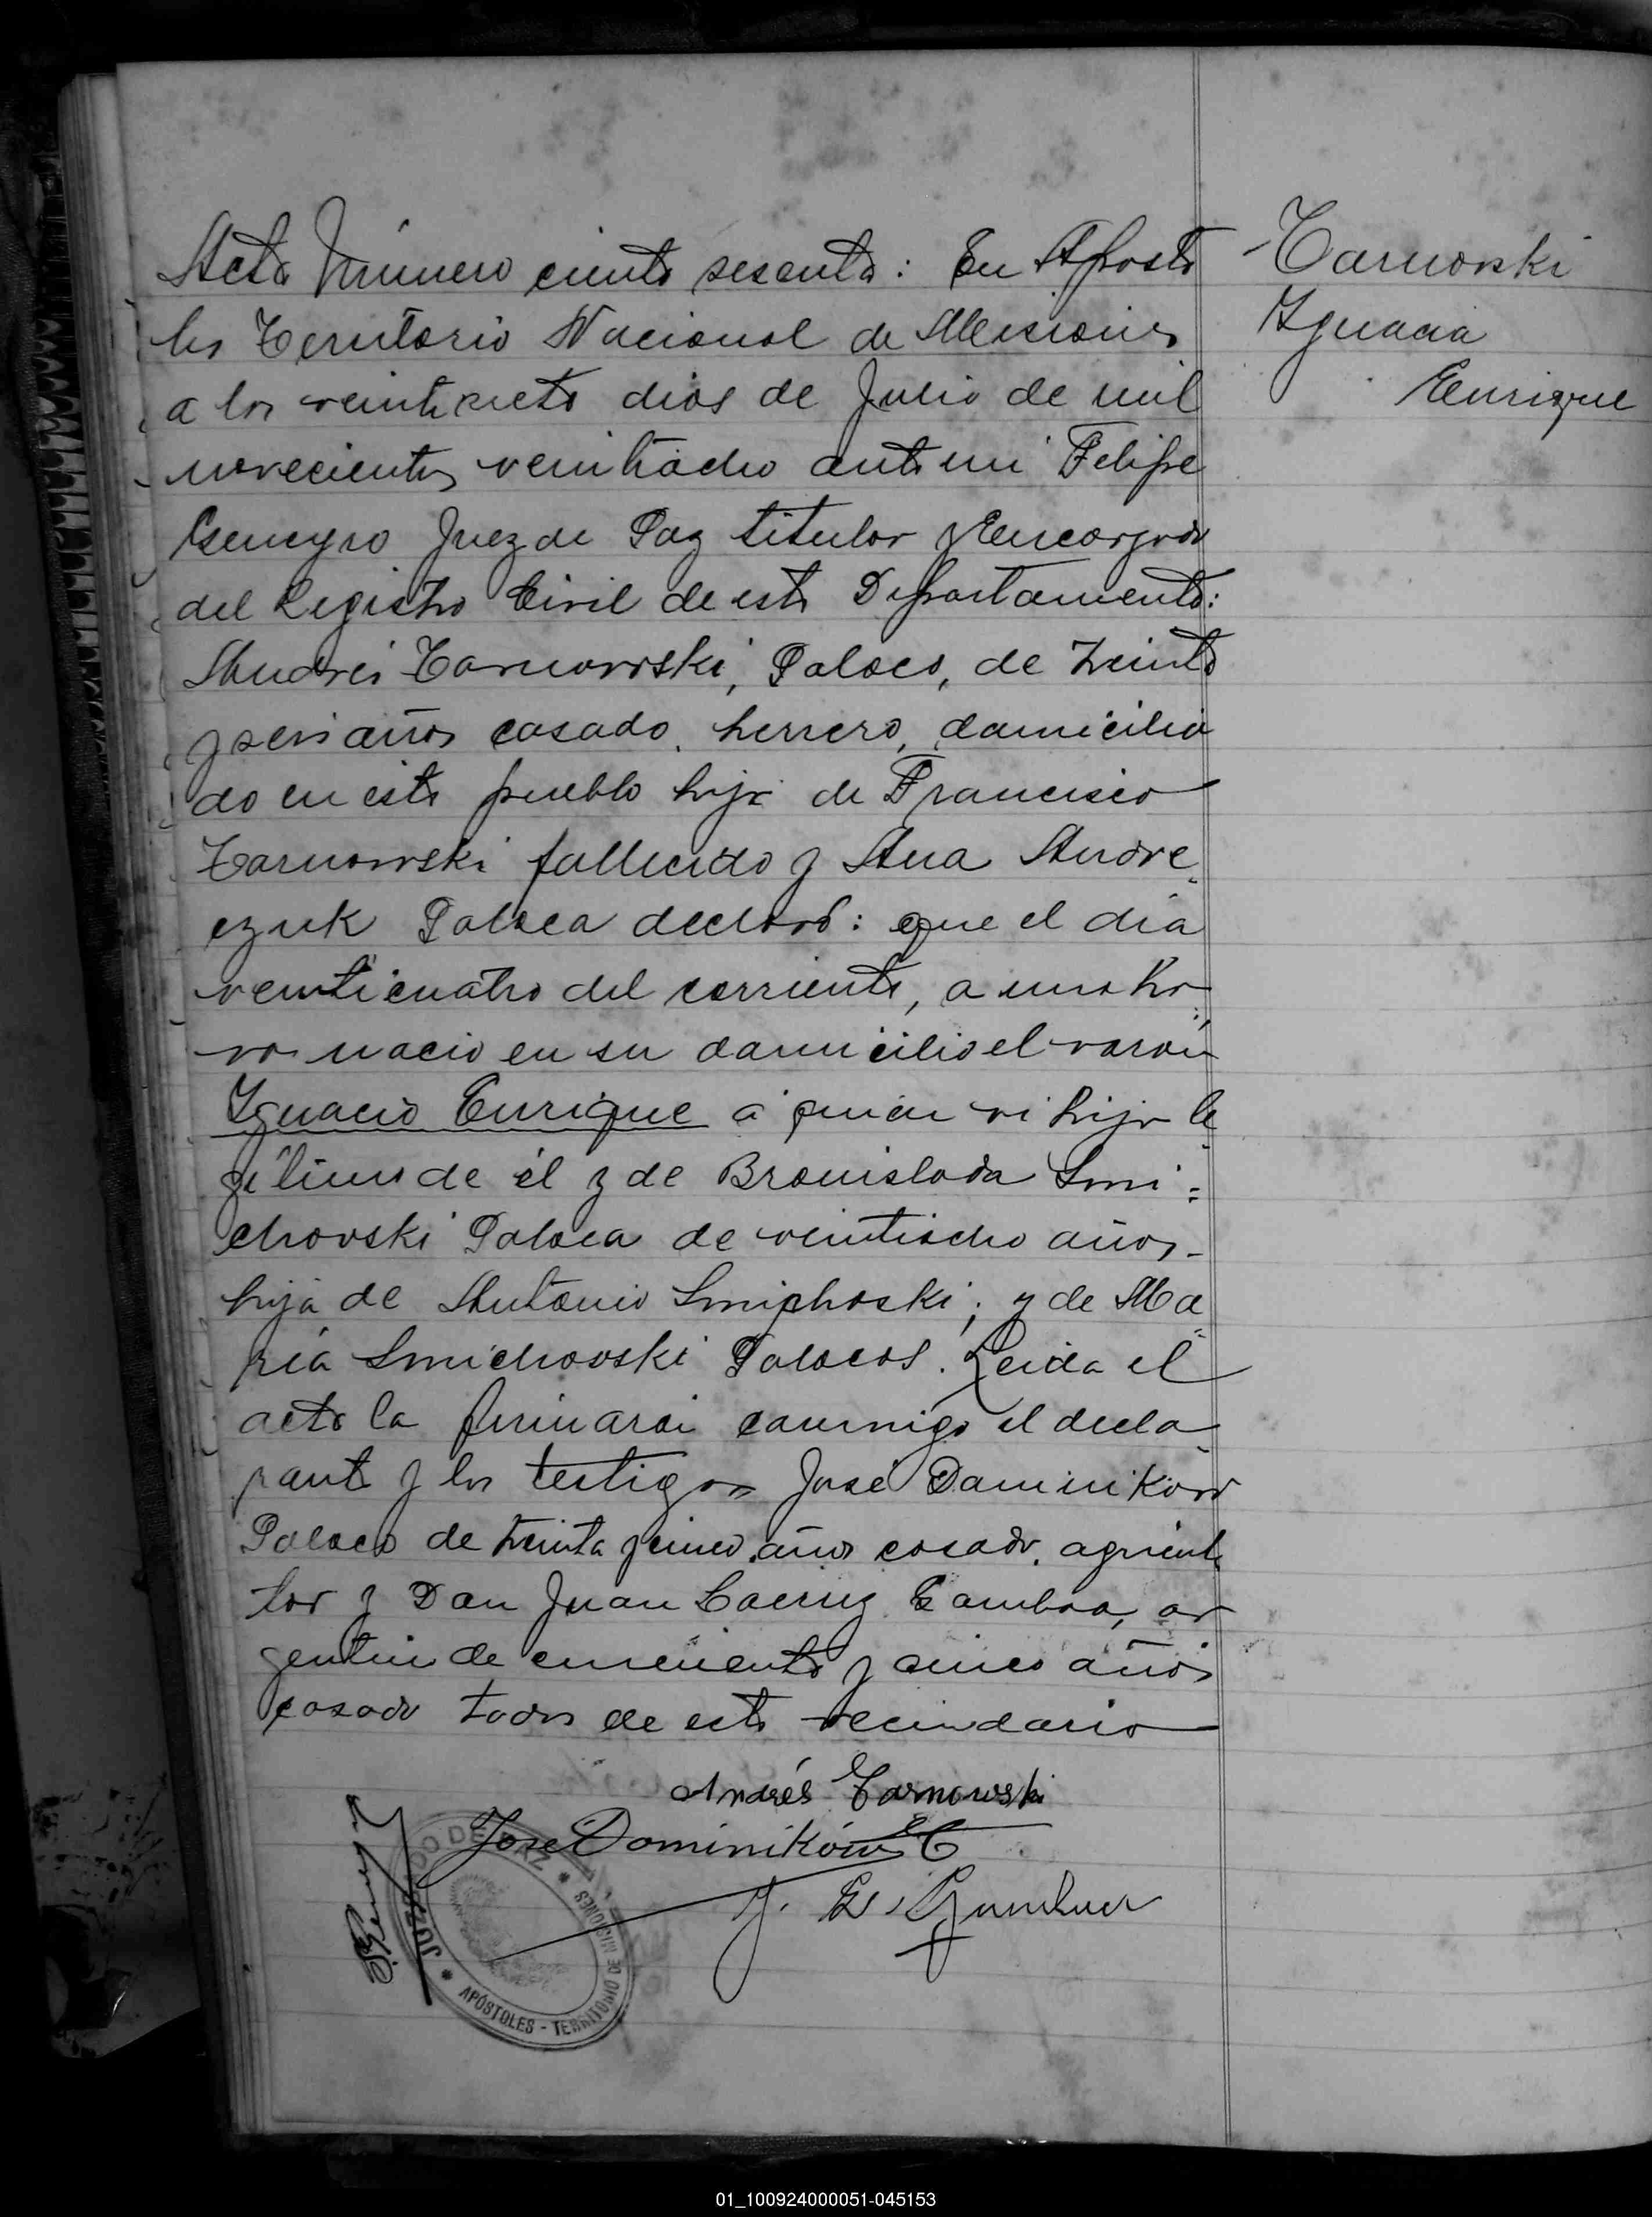 Acta Número ciento sesenta: En Aposto
les Territorio Nacional de Misiones
a los veintisiete dias de Julio de mil
novecientos veintiocho ante mi Felipe
Juez de Paz titular y Encargado
del Registro Civil de este Departamento:
Andrés Tarnowski, Polaco, de treinta
y seis años casado, herrero, domicilia
do en este pueblo hijo de Francisco
Tarnowski fallecido y Ana Andre
czuk Polaca declaró: que el día
veinticuatro del corriente, a una ho
ra nació en su domicilio el varón
Ignacio Enrique a quien vi hijo le
gítimo de él y de Bronislada Smi=
chovski Polaca de veintiocho años-
hija de Antonio Smichoski; y de Ma
ría Smichovski Polacos. Leida el
acta la firmarai conmigo el decla
rante y los testigos José Dominikow
Polaco de treinta y cinco años casado, agricul
tor y Don Juan Gamboa, ar
gentino de cincuenta y cinco años
casado todos de este vecindario
Andrés Tarnowski
Jose Dominików
J. E. Gamboa
JUZGADO DE PAZ
APÓSTOLES - TERRITORIO DE MISIONES
Tarnoski
Ignacio
Enrique
01_100924000051-045153